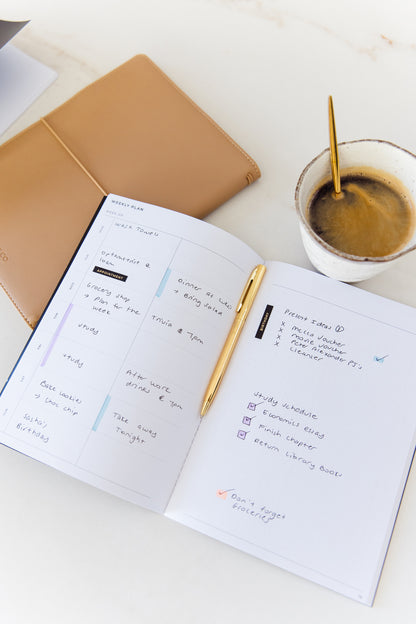 WEEKLY PLAN
WEEK OF
wash towels
optometrist @
10am
APPOINTMENT
Grocery shop
→ Plan for the
week
study
study
Bake cookies
→ choc chip
Sasha's
Birthday
Dinner at
→ Bring salad
Trivia @ 7pm
After work
drinks @ 7pm
Take away
Tonight
BIRTHDAY
Present Ideas
x mecca voucher
x movie voucher
x Peter Alexander PJ's
x cleanser
study schedule
Economics essay
Finish chapter
Return Library Books
Don't forget
Groceries